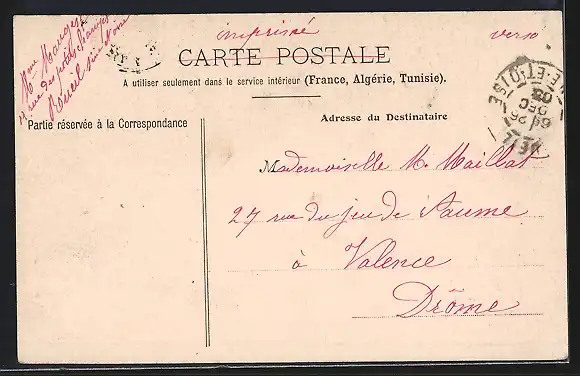 imprimé
verso
Mme
rue des petits champs
CARTE POSTALE
A utiliser seulement dans le service intérieur (France, Algérie, Tunisie).
Partie réservée à la Correspondance
Adresse du Destinataire
Mademoiselle M. Maillat
27 rue du jeu de Paume
à Valence
Drôme
E-ET-OISE
6H 26
DEC
03